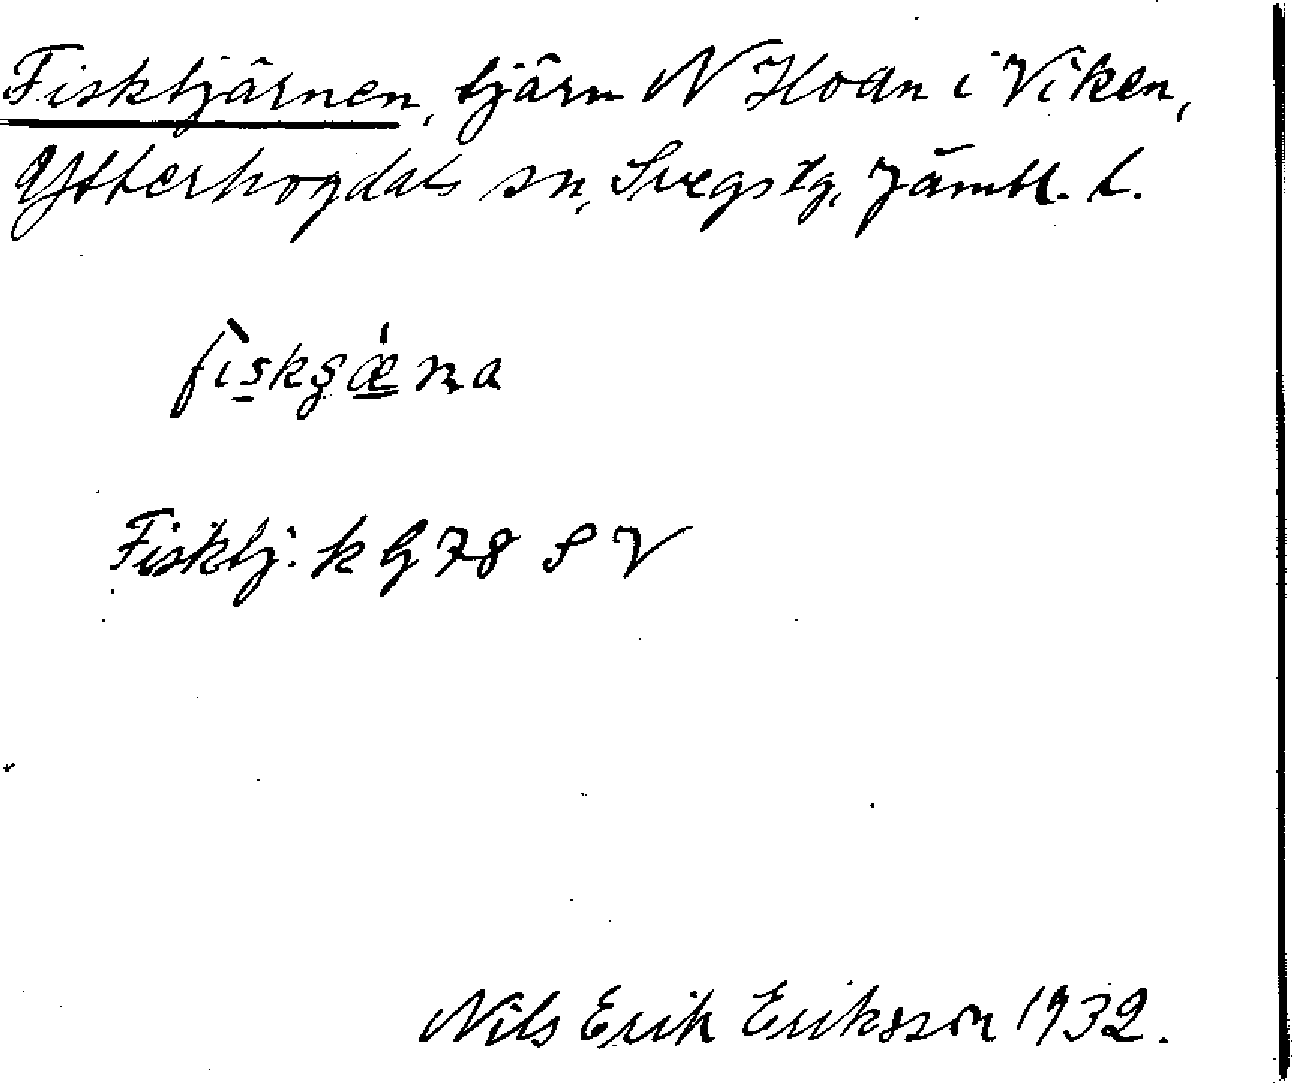 Fisktjärnen, tjärn N Hoan i Viken,
Ytterhogdals sn, Svegs tg, Jämtl. l.
fiskʂǽna
Fisktj. k G 78 S V
Nils Erik Eriksson 1932.